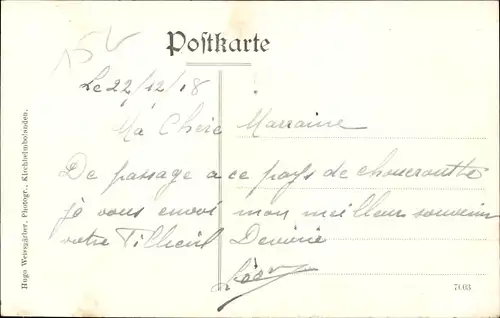 15
Postkarte
Le 22/12/18
Ma Chère Marraine
De passage a ce pays de choucroutte
je vous envoi mon meilleur souvenir
votre Filleul
Hugo Weissgärber, Photogr., Kirchheimbolanden.
7603